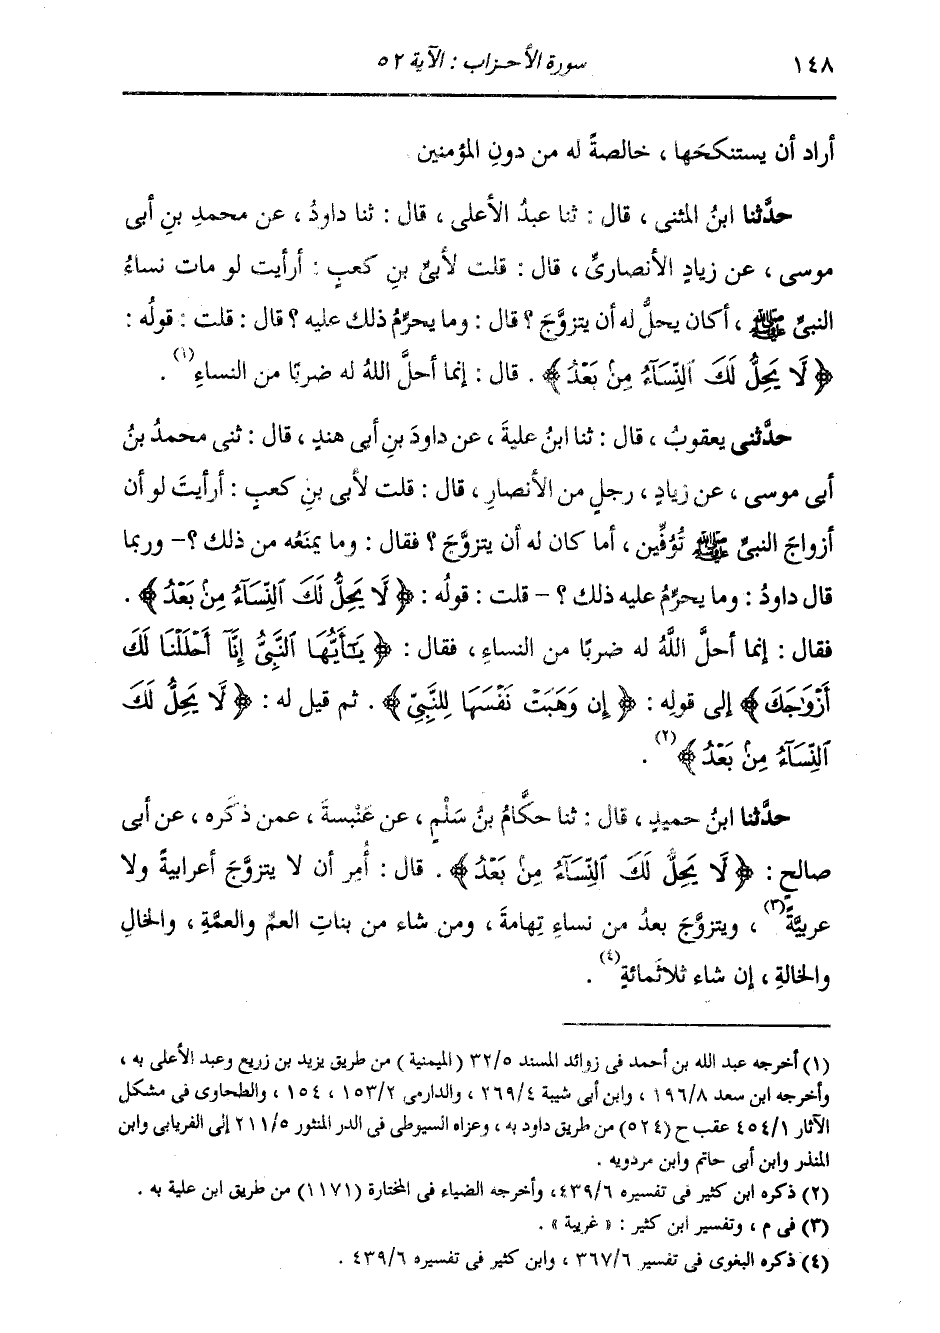 ١٤٨ سورة الأحزاب : الآية ٥٢
أراد أن يستنكحَها ، خالصةً له من دونِ المؤمنين
حدَّثنا ابنُ المثنى ، قال : ثنا عبدُ الأعلى ، قال : ثنا داودُ ، عن محمدِ بنِ أبى
موسى ، عن زيادٍ الأنصارىِّ ، قال : قلت لأبىِّ بنِ كعبٍ : أرأيت لو مات نساءُ
النبىِّ ﷺ ، أكان يحلُّ له أن يتزوَّجَ ؟ قال : وما يحرِّمُ ذلك عليه ؟ قال : قلت : قولُه :
﴿ لَّا يَحِلُّ لَكَ ٱلنِّسَآءُ مِنۢ بَعْدُ ﴾ . قال : إنما أحلَّ اللهُ له ضربًا من النساءِ (١) .
حدَّثنى يعقوبُ ، قال : ثنا ابنُ عليةَ ، عن داودَ بنِ أبى هندٍ ، قال : ثنى محمدُ بنُ
أبى موسى ، عن زيادٍ ، رجلٍ من الأنصارِ ، قال : قلت لأبى بنِ كعبٍ : أرأيتَ لو أن
أزواجَ النبىِّ ﷺ تُوُفِّين ، أما كان له أن يتزوَّجَ ؟ فقال : وما يمنَعُه من ذلك ؟ - وربما
قال داودُ : وما يحرِّمُ عليه ذلك ؟ - قلت : قولُه : ﴿ لَّا يَحِلُّ لَكَ ٱلنِّسَآءُ مِنۢ بَعْدُ ﴾ .
فقال : إنما أحلَّ اللَّهُ له ضربًا من النساءِ ، فقال : ﴿ يَٰٓأَيُّهَا ٱلنَّبِىُّ إِنَّآ أَحْلَلْنَا لَكَ
أَزْوَٰجَكَ ﴾ إلى قولِه : ﴿ إِن وَهَبَتْ نَفْسَهَا لِلنَّبِىِّ ﴾ . ثم قيل له : ﴿ لَّا يَحِلُّ لَكَ
ٱلنِّسَآءُ مِنۢ بَعْدُ ﴾ (٢) .
حدَّثنا ابنُ حميدٍ ، قال : ثنا حكَّامُ بنُ سَلْمٍ ، عن عَنْبسةَ ، عمن ذكَره ، عن أبى
صالحٍ : ﴿ لَّا يَحِلُّ لَكَ ٱلنِّسَآءُ مِنۢ بَعْدُ ﴾ . قال : أُمِر أن لا يتزوَّجَ أعرابيةً ولا
عربيَّةً (٣) ، ويتزوَّجَ بعدُ من نساءِ تِهامةَ ، ومن شاء من بناتِ العمِّ والعمَّةِ ، والخالِ
والخالةِ ، إن شاء ثلاثَمائةٍ (٤) .
(١) أخرجه عبد الله بن أحمد فى زوائد المسند ٣٢/٥ (الميمنية) من طريق يزيد بن زريع وعبد الأعلى به ،
وأخرجه ابن سعد ١٩٦/٨ ، وابن أبى شيبة ٢٦٩/٤ ، والدارمى ١٥٣/٢ ، ١٥٤ ، والطحاوى فى مشكل
الآثار ٤٥٤/١ عقب ح (٥٢٤) من طريق داود به ، وعزاه السيوطى فى الدر المنثور ٢١١/٥ إلى الفريابى وابن
المنذر وابن أبى حاتم وابن مردويه .
(٢) ذكره ابن كثير فى تفسيره ٤٣٩/٦، وأخرجه الضياء فى المختارة (١١٧١) من طريق ابن علية به .
(٣) فى م ، وتفسير ابن كثير : « غريبة » .
(٤) ذكره البغوى فى تفسير ٣٦٧/٦ ، وابن كثير فى تفسيره ٤٣٩/٦ .